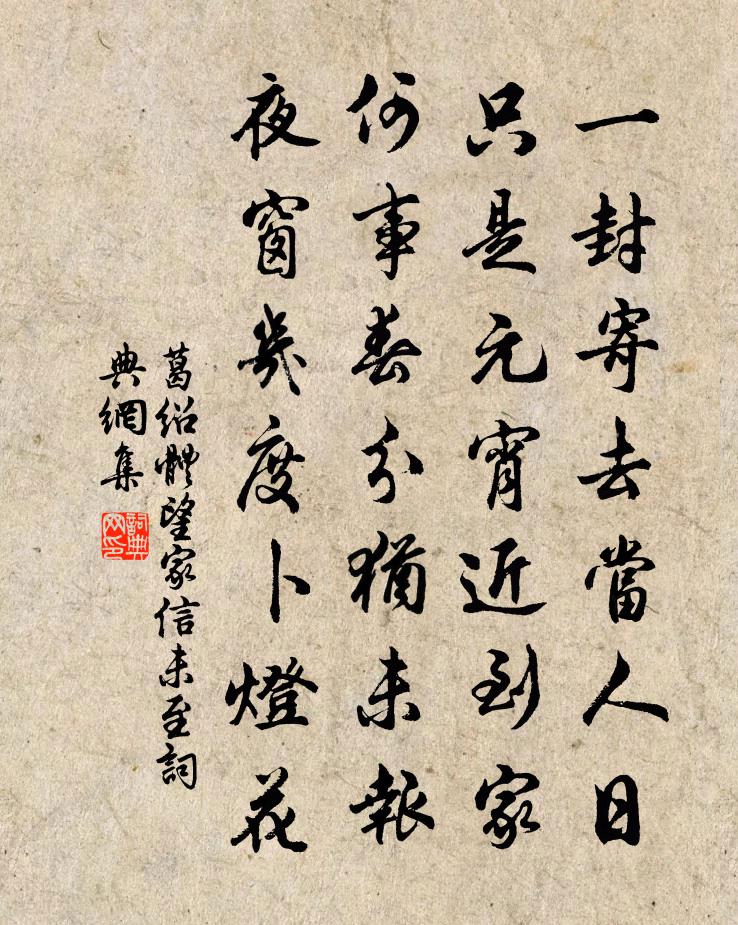 一封寄去當人日
只是元宵近到家
何事春分猶未報
夜窗幾度卜燈花
葛紹體望家信未至詞
典網集
詞典
网印